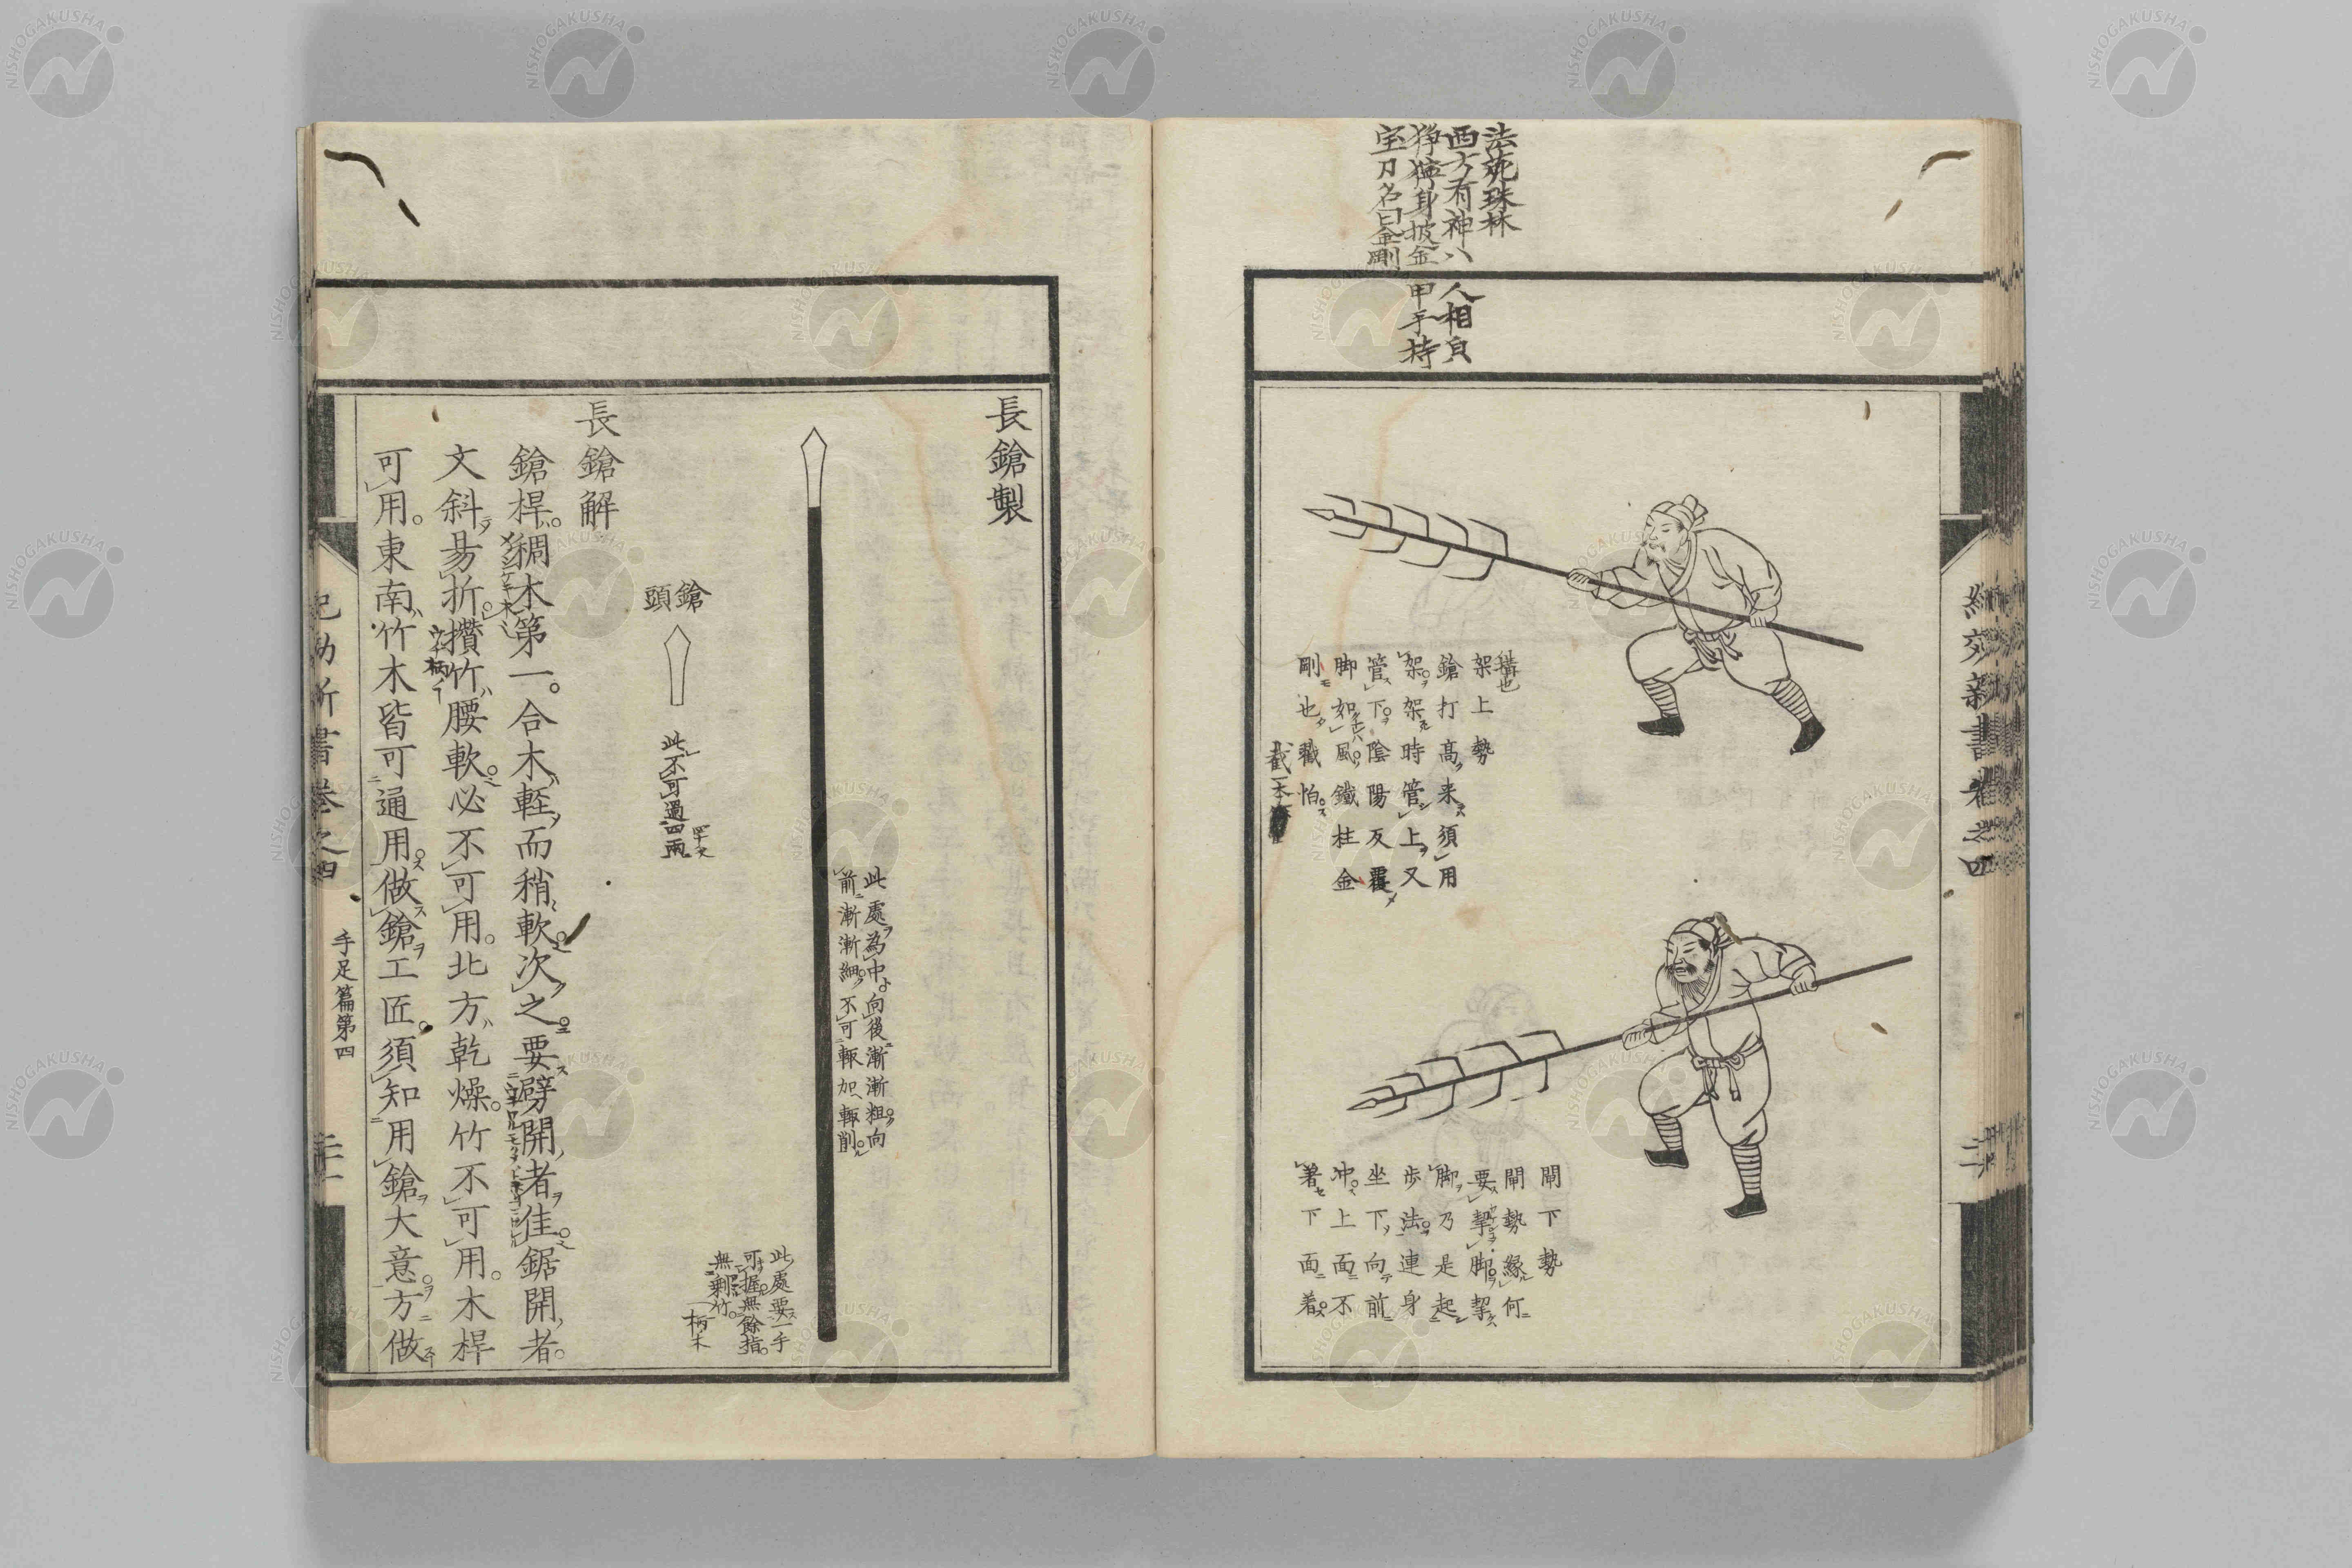 法苑珠林
西方有神八
人相貟
狰獰身披金
甲手持
宝刀名曰金剛
架上勢
鎗打高来須用
架架時管上又
管下陰陽反覆
脚如風鐵柱金
剛也戳怕
閘下勢
閘勢緣何
要挈脚挈
脚乃是起
歩法連身
坐下向前
冲上面不
著下面着
紀効新書卷之四
長鎗製
此處為中向後漸漸粗向
前漸漸細不可輙加輙削
此處要一手
可握無餘指
無剰竹
鎗頭
此不可過四兩
長鎗解
鎗桿稠木第一合木輕而稍軟次之要劈開者佳鋸開者
文斜易折攢竹腰軟必不可用北方乾燥竹不可用木桿
可用東南竹木皆可通用做鎗工匠須知用鎗大意方做
紀効新書卷之四
手足篇第四